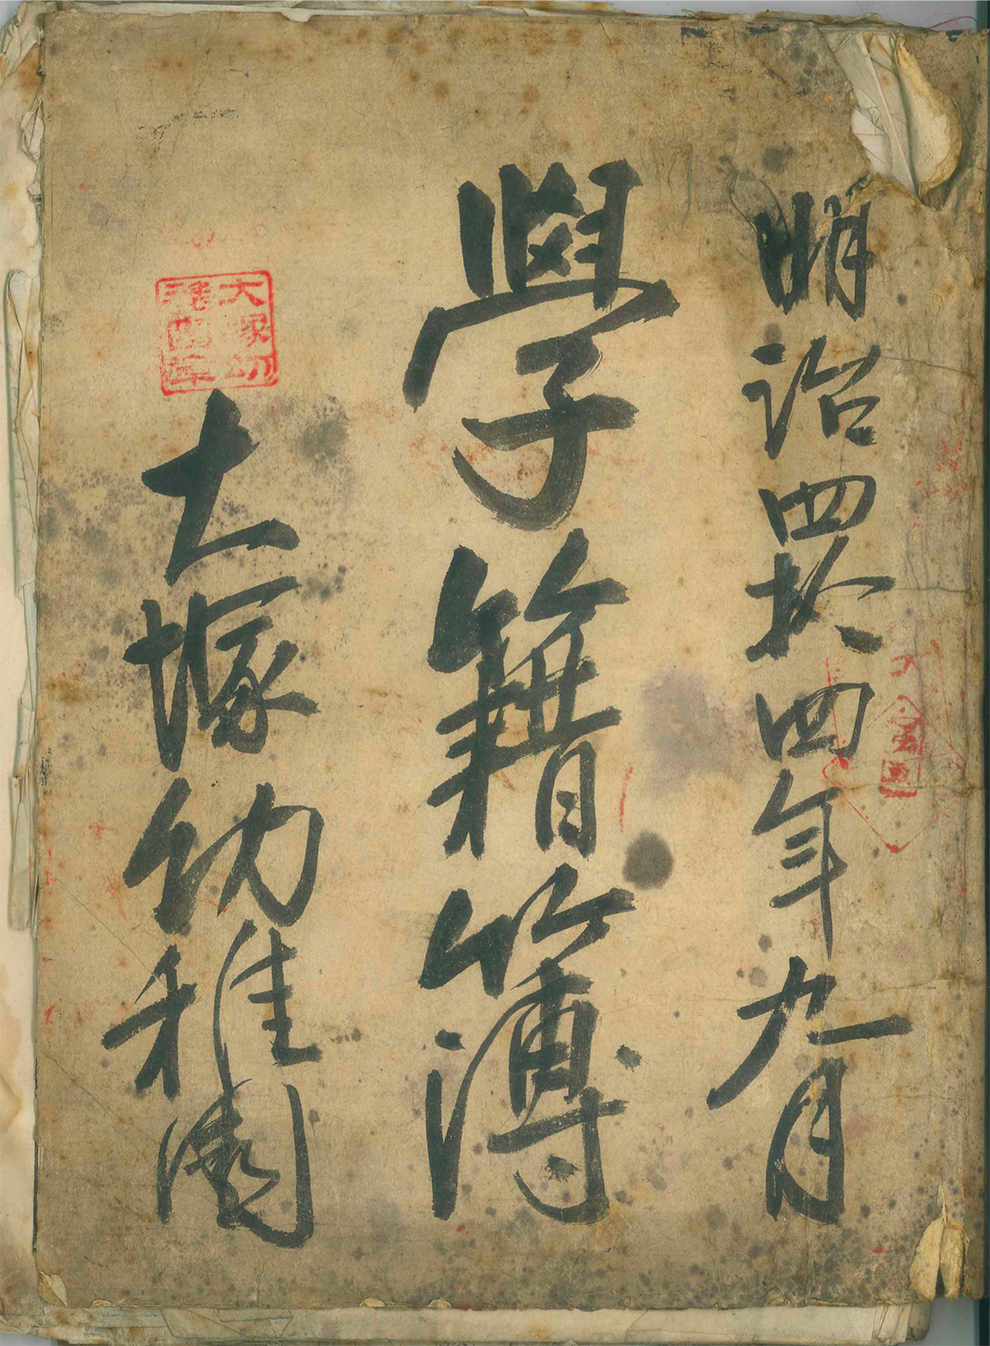 明治四拾四年九月
學籍簿
大塚幼稚園
大塚幼
稚園章